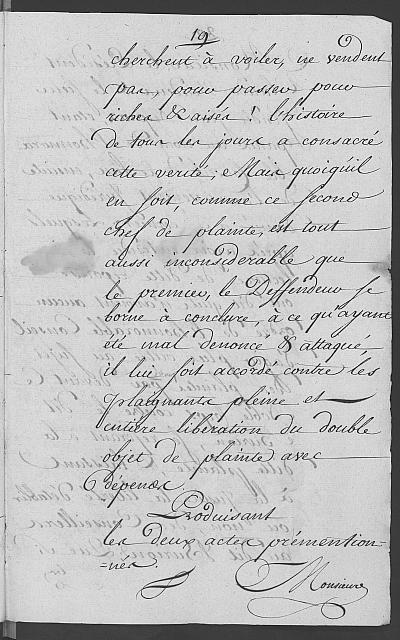 19
cherchent à voiler, ne vendent
pas, pour passer pour
riches & aisés ! l'histoire
de tous les jours a consacré
cette verité ; Mais quoiqu'il
en soit, comme ce second
chef de plainte, est tout
aussi inconsiderable que
le premier, le Deffendeur se
borne à conclure, à ce qu'ayant
été mal denoncé & attaqué
il lui soit accordé contre les
plaignants pleine et
entière libération du double
objet de plainte avec
Dépends.
Produisant
les deux actes prémention-
=nés.
Monsieur